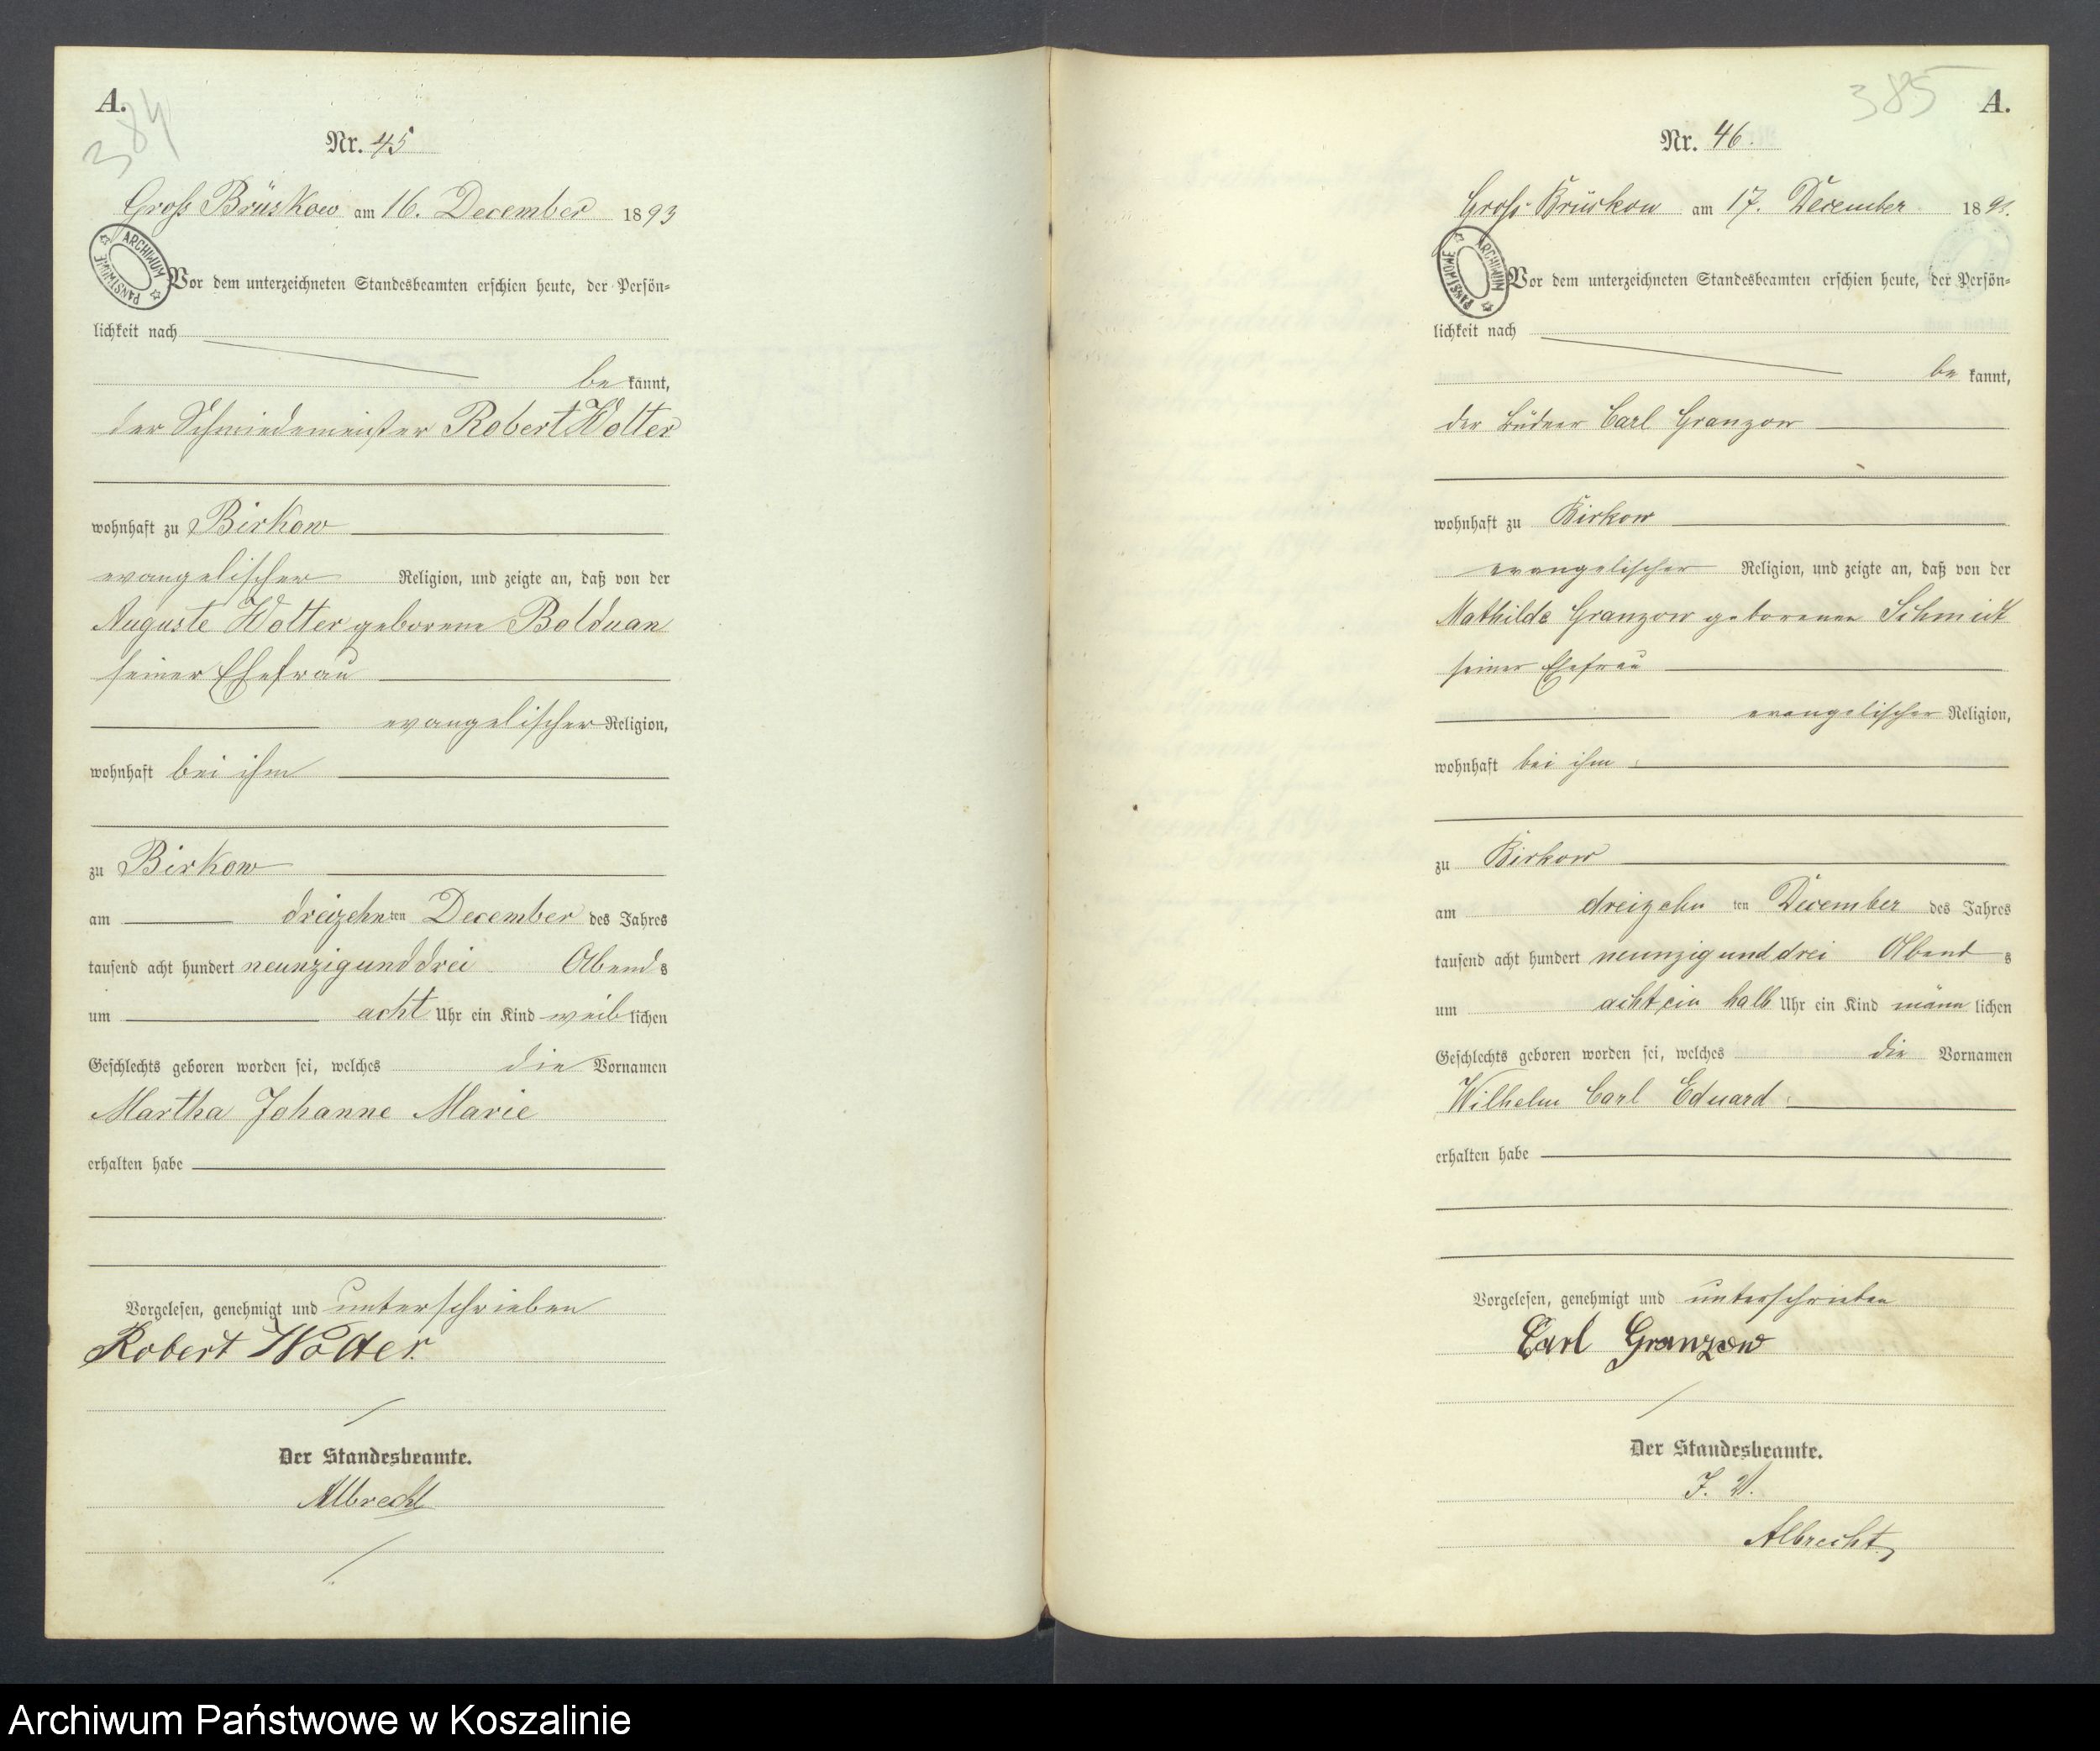 A.
384
Nr. 45
Groß Brüskow am 16. December 1893
ARCHIWUM PAŃSTWOWE
Vor dem unterzeichneten Standesbeamten erschien heute, der Persön-
lichkeit nach
be kannt,
der Schmiedemeister Robert Wolter
wohnhaft zu Birkow
evangelischer Religion, und zeigte an, daß von der
Auguste Wolter geborene Bolduan
seiner Ehefrau
evangelischer Religion,
wohnhaft bei ihm
zu Birkow
am dreizehn ten December des Jahres
tausend acht hundert neunzigunddrei Abends
um acht Uhr ein Kind weiblichen
Geschlechts geboren worden sei, welches die Vornamen
Martha Johanne Marie
erhalten habe
Vorgelesen, genehmigt und unterschrieben
Robert Wolter.
Der Standesbeamte.
Albrecht
385
A.
Nr. 46.
Groß Brüskow am 17. December 189
ARCHIWUM PAŃSTWOWE
Vor dem unterzeichneten Standesbeamten erschien heute, der Persön-
lichkeit nach
be kannt,
der Büdner Carl Granzow
wohnhaft zu Birkow
evangelischer Religion, und zeigte an, daß von der
Mathilde Granzow geborenen Schmidt
seiner Ehefrau
evangelischer Religion,
wohnhaft bei ihm
zu Birkow
am dreizehn ten December des Jahres
tausend acht hundert neunzigunddrei Abend s
um acht ein halb Uhr ein Kind männ lichen
Geschlechts geboren worden sei, welches die Vornamen
Wilhelm Carl Eduard
erhalten habe
Vorgelesen, genehmigt und unterschrieben
Carl Granzow
Der Standesbeamte.
J. V.
Albrecht
Archiwum Państwowe w Koszalinie